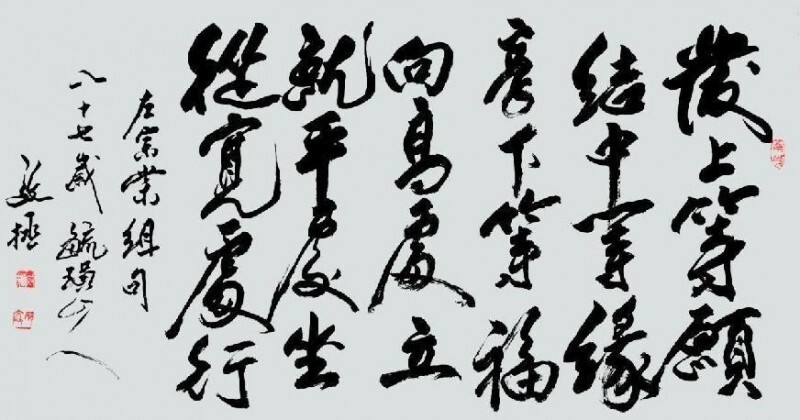 發上等願
結中等緣
享下等福
向高處立
就平處坐
從寬處行
左宗棠組句
八十七歲毓璜山人